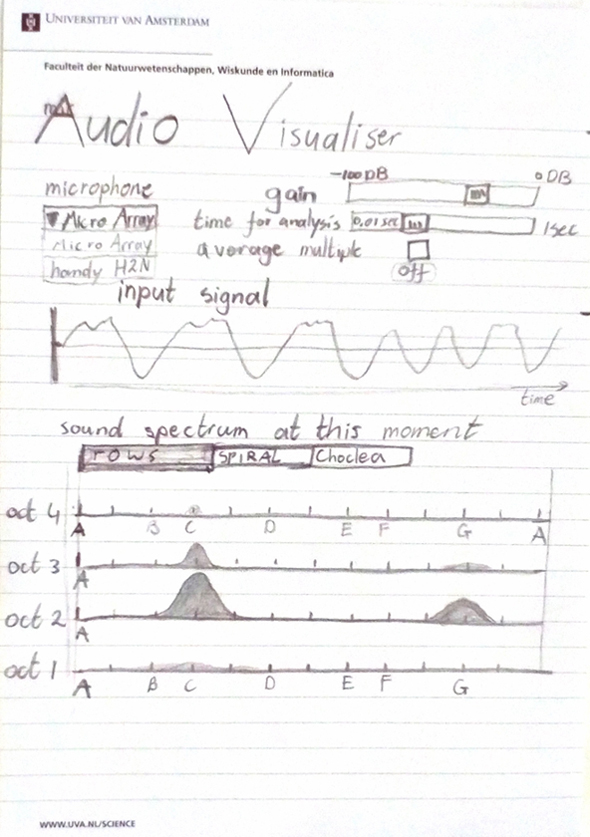 UNIVERSITEIT VAN AMSTERDAM
Faculteit der Natuurwetenschappen, Wiskunde en Informatica
Audio Visualiser
-100 DB 0 DB
microphone gain
Micro Array time for analysis 0.01 sec 1 sec
Micro Array average multiple
handy H2N off
input signal
time
sound spectrum at this moment
rows SPIRAL Choclea
oct 4
A B C D E F G A
oct 3
A
oct 2
A
oct 1
A B C D E F G
WWW.UVA.NL/SCIENCE